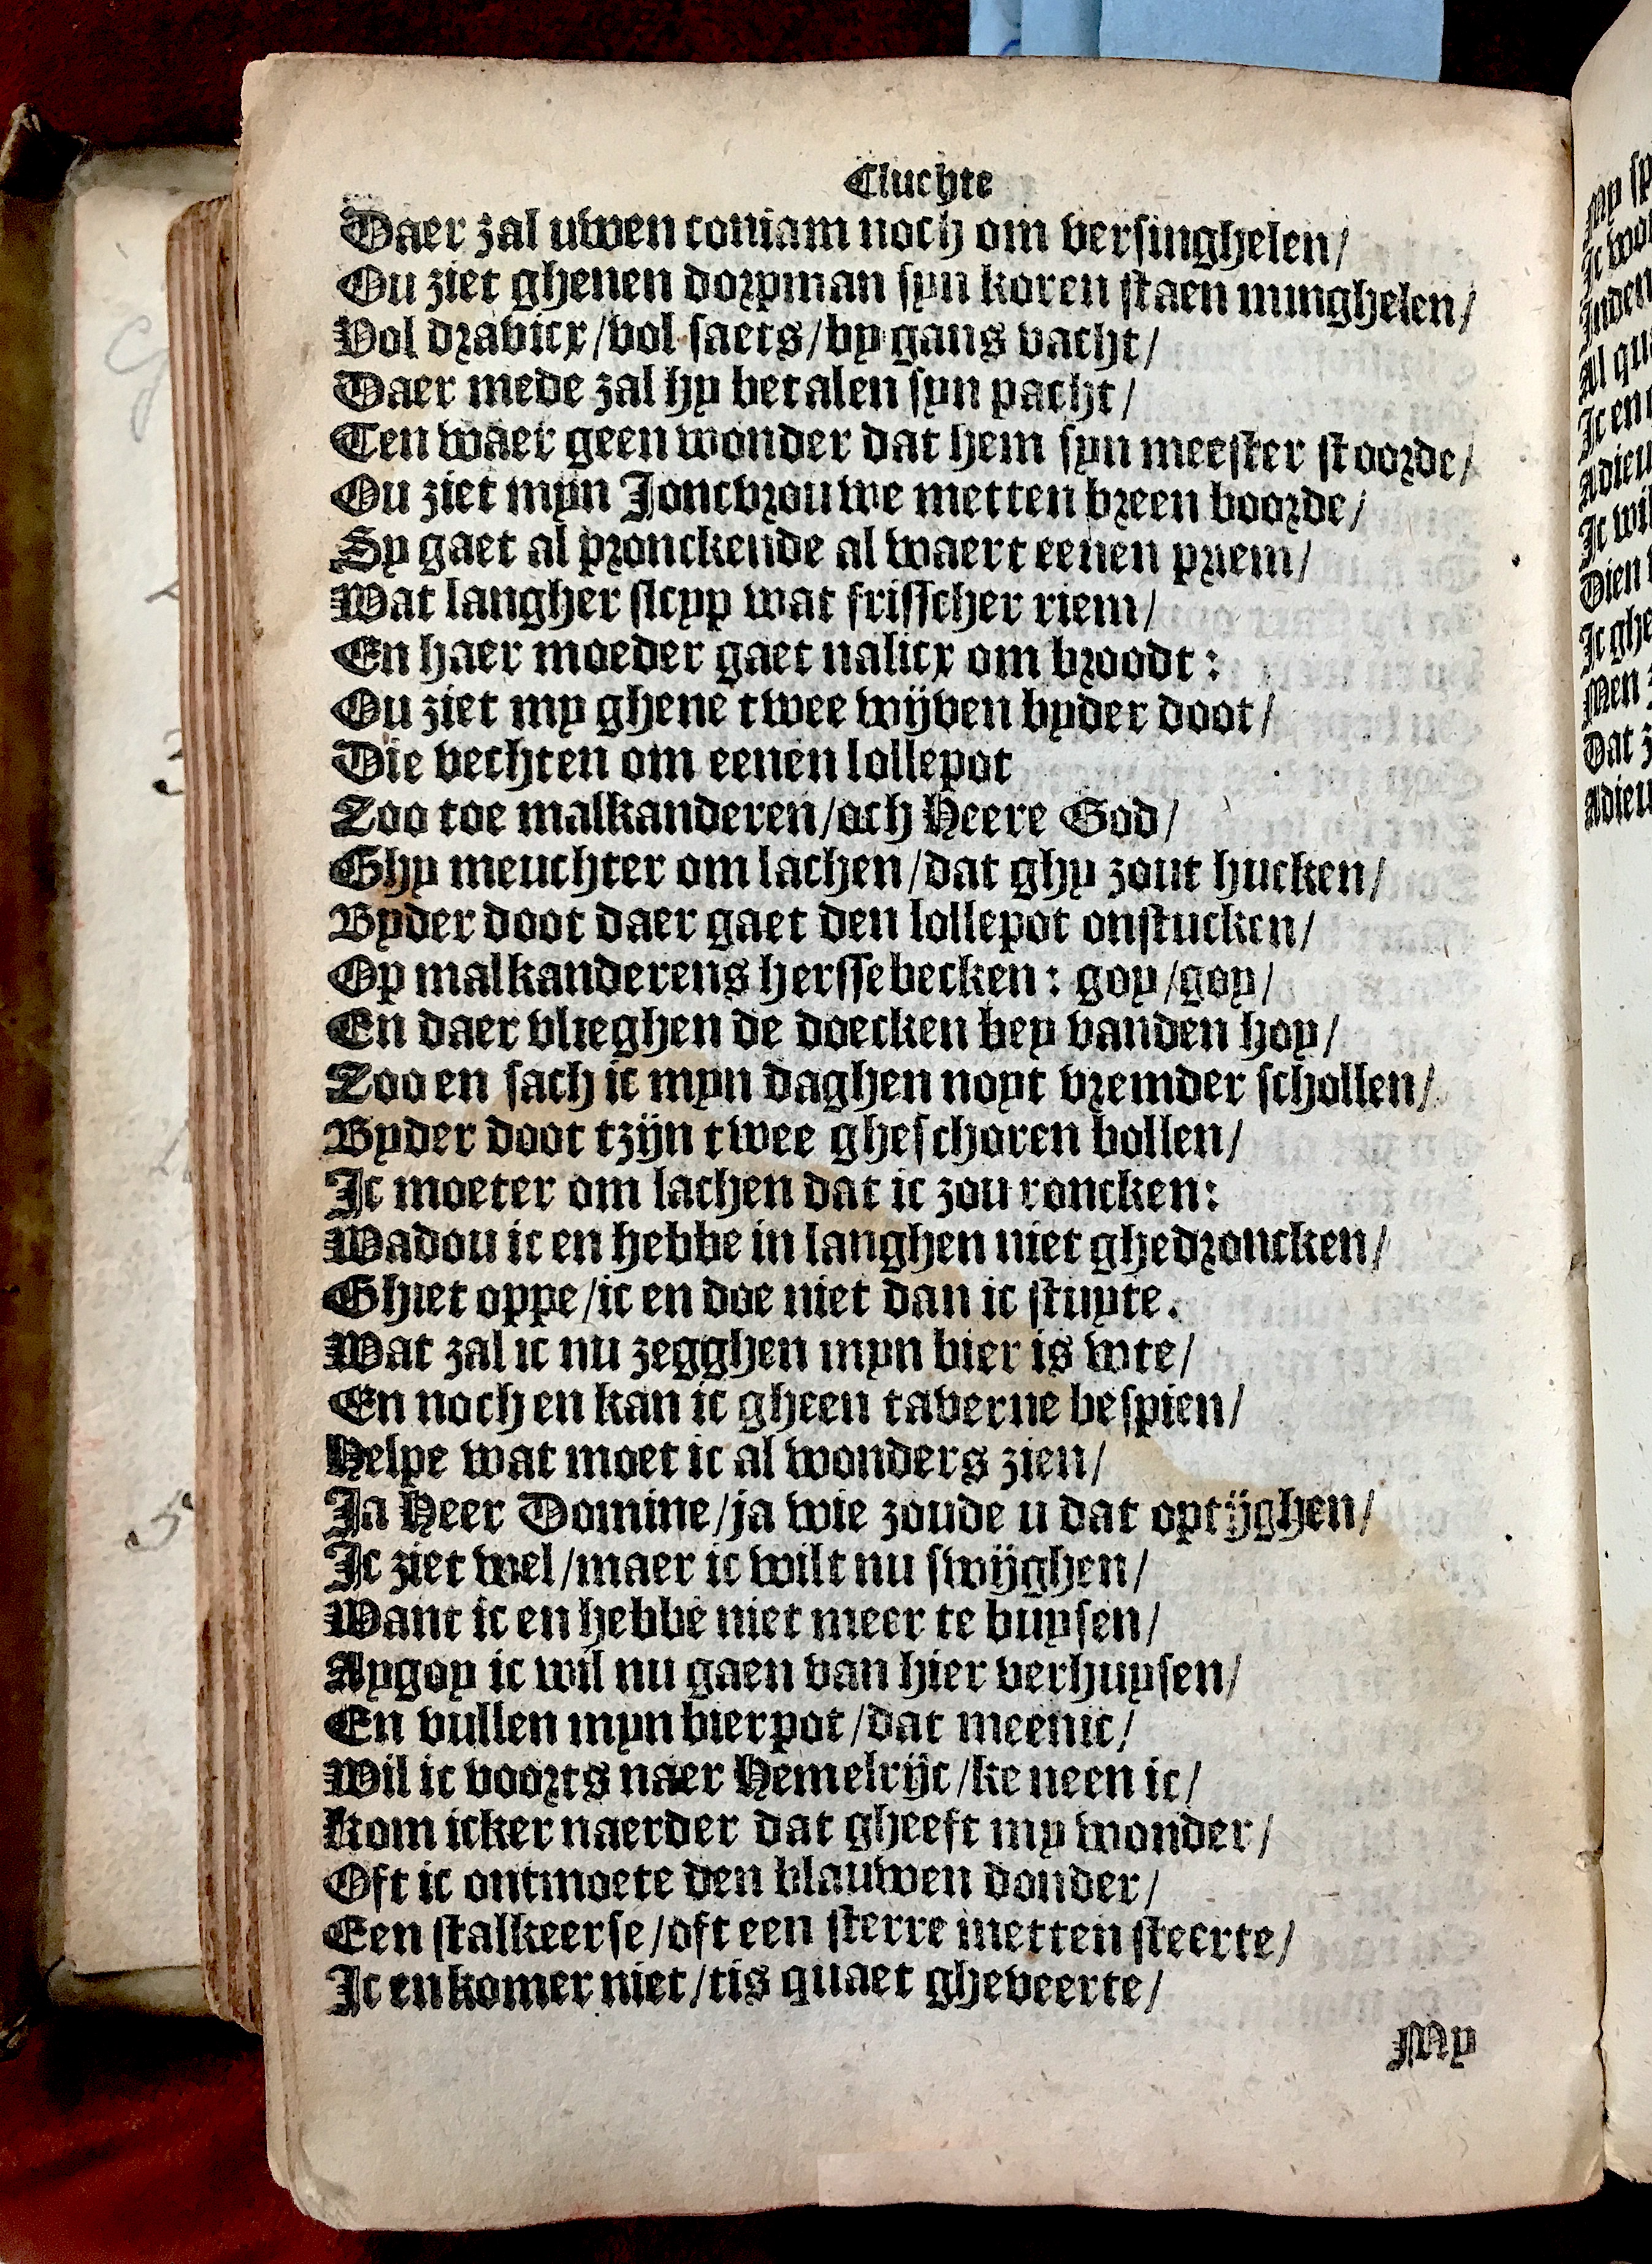 Cluchte
Daer zal uwen coniam noch om versinghelen/
Ou ziet ghenen dorpman syn koren staen minghelen/
Vol dravicx/vol saets/by gans vacht/
Daer mede zal hy betalen syn pacht/
Ten waer geen wonder dat hem syn meester stoorde/
Ou ziet mijn Joncvrouwe metten breen boorde/
Sy gaet al pronckende al waert eenen priem/
Wat langher sleyp wat frisscher riem/
En haer moeder gaet nalicx om broodt:
Ou ziet my ghene twee wijven byder doot/
Die vechten om eenen lollepot
Zoo toe malkanderen/och Heere God/
Ghy meuchter om lachen/dat ghy zout hucken/
Byder doot daer gaet den lollepot onstucken/
Op malkanderens herssebecken: goy/goy/
En daer vlieghen de doecken bey vanden hoy/
Zoo en sach ic myn daghen noyt vremder schollen/
Byder doot tzijn twee gheschoren bollen/
Ic moeter om lachen dat ic zou roncken:
Wadou ic en hebbe in langhen niet ghedroncken/
Ghiet oppe/ic en doe niet dan ic stuyte.
Wat zal ic nu zegghen myn bier is wte/
En noch en kan ic gheen taverne bespien/
Helpe wat moet ic al wonders zien/
Ja Heer Domine/ja wie zoude u dat optijghen/
Ic ziet wel/maer ic wilt nu swijghen/
Want ic en hebbe niet meer te buysen/
Aygoy ic wil nu gaen van hier verhuysen/
En vullen myn bierpot/dat meenic/
Wil ic voorts naer Hemelrijc/ke neen ic/
Kom icker naerder dat gheeft my wonder/
Oft ic ontmoete den blauwen donder/
Een stalkeerse/oft een sterre metten steerte/
Ic en komer niet/tis quaet gheveerte/
My